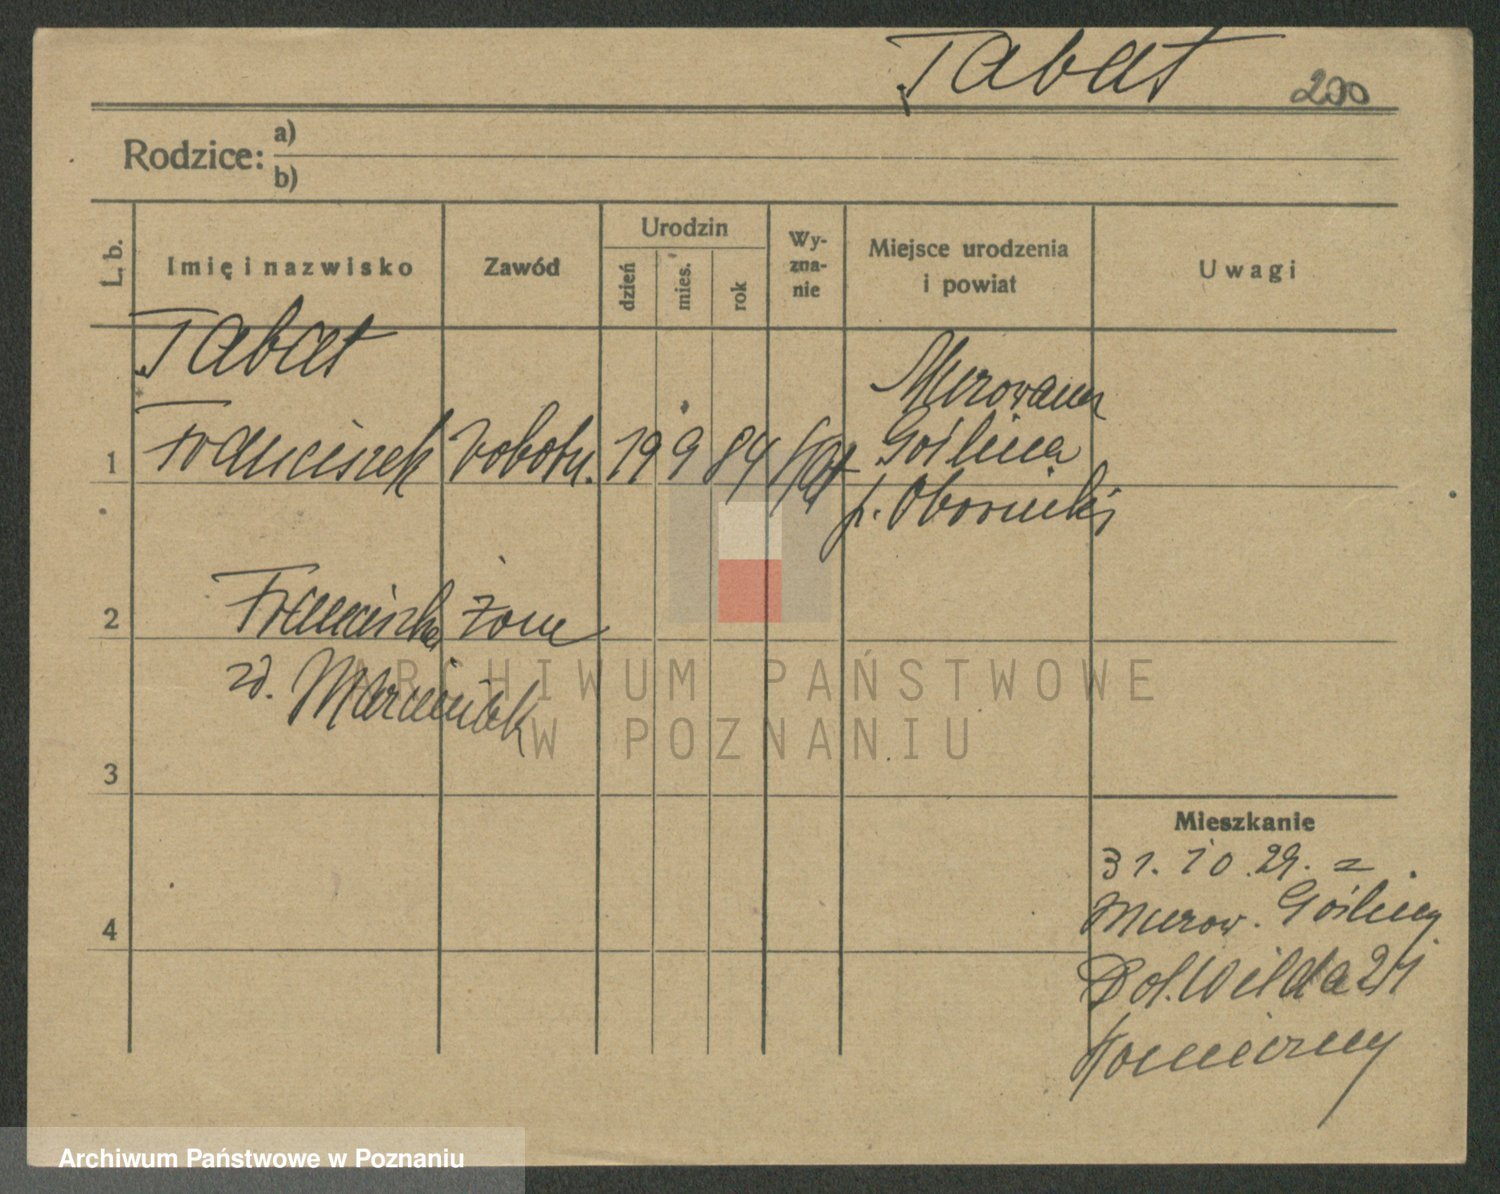 Tabat 200
Rodzice: a)
b)
L. b. Imię i nazwisko Zawód Urodzin dzień mies. rok Wy-zna-nie Miejsce urodzenia i powiat Uwagi
Tabat
1 Franciszek robotn. 19 9 84 kat Murowana
Goślina
p. Oborniki
2 Franciszka żona
zd. Marciniak
3
Mieszkanie
31. 10. 29. z
Murow. Gośliny
4
Dol. Wilda 21
Konieczny
ARCHIWUM PAŃSTWOWE
W POZNANIU
Archiwum Państwowe w Poznaniu